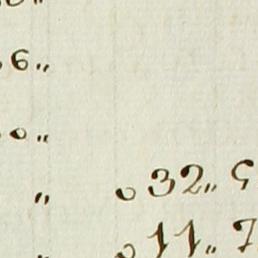 6„
0„
„ 032„ 5
„ 011„ 7